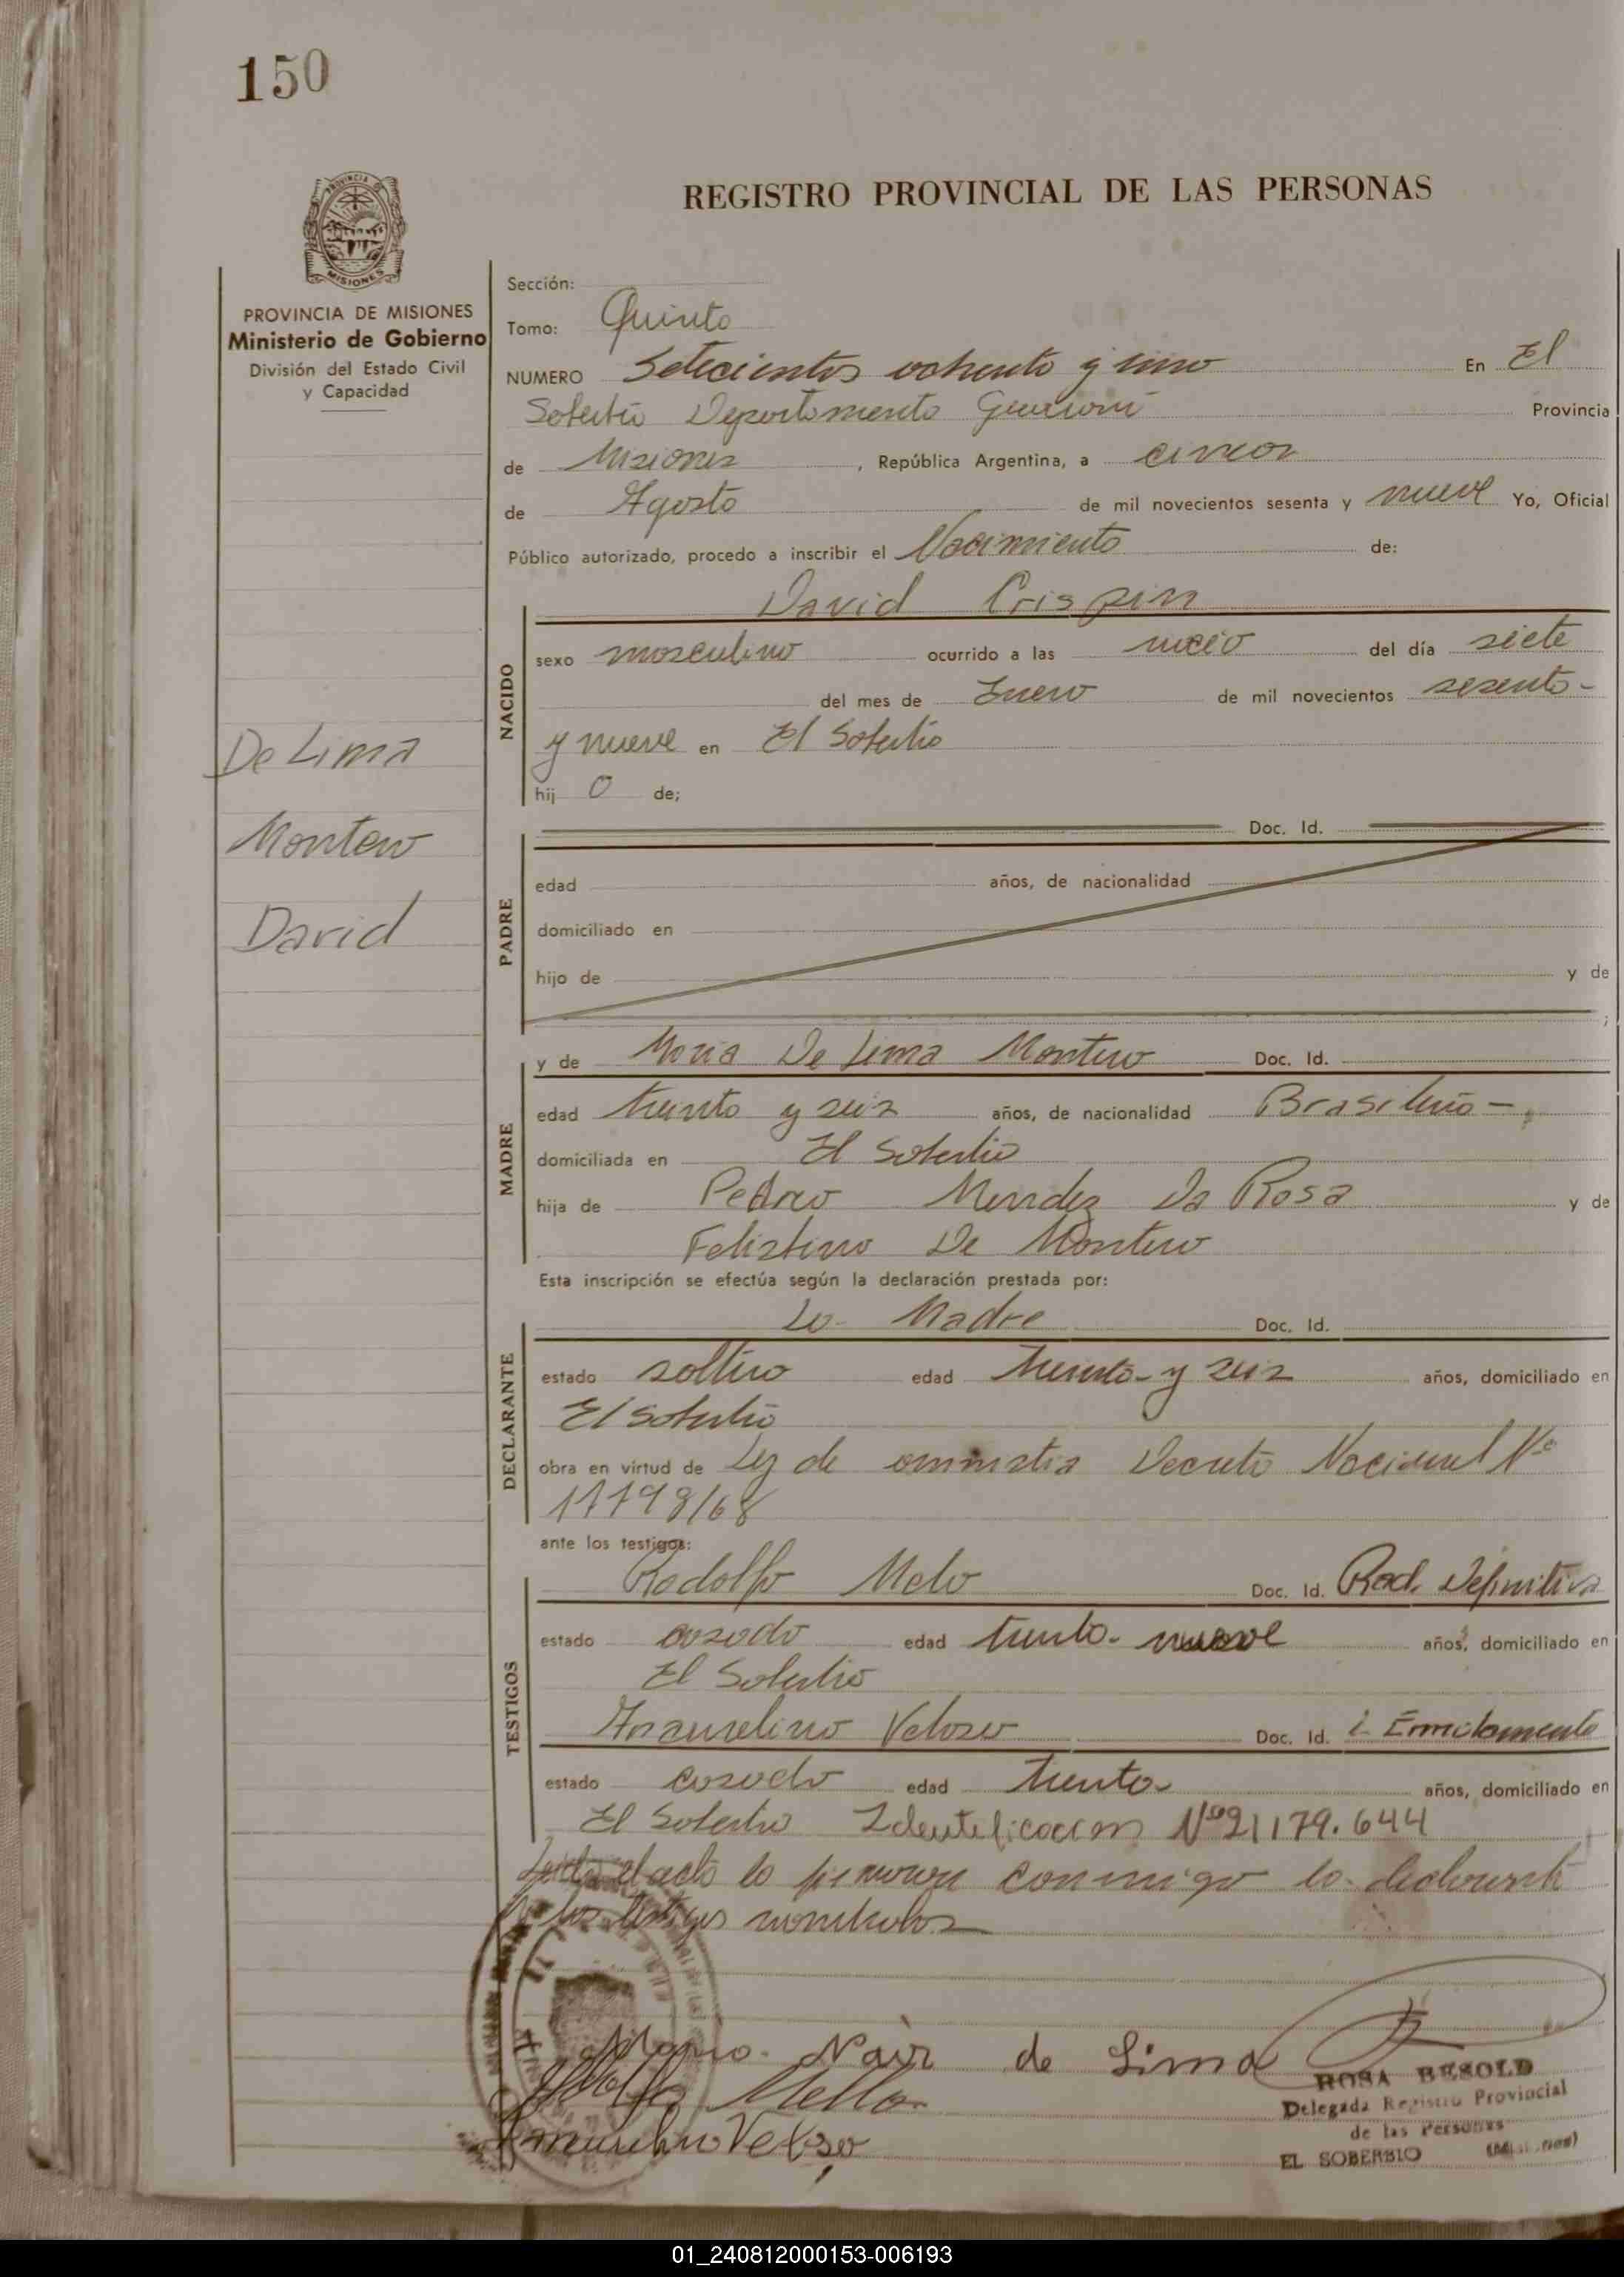 150
REGISTRO PROVINCIAL DE LAS PERSONAS
PROVINCIA DE MISIONES
Ministerio de Gobierno
División del Estado Civil
y Capacidad
Sección:
Tomo: Quinto
NUMERO Setecientos ochenta y uno En El
Soberbio Departamento Guarani Provincia
de Misiones, República Argentina, a cinco
de Agosto de mil novecientos sesenta y nueve Yo, Oficial
Público autorizado, procedo a inscribir el Nacimiento de:
David Crispin
NACIDO
sexo masculino ocurrido a las del día siete
del mes de Enero de mil novecientos sesenta-
y nueve en El Soberbio
hij o de;
De Lima
Montero
David
PADRE
Doc. Id.
edad años, de nacionalidad
domiciliado en
hijo de y de
;
MADRE
y de Maria De Lima Montero Doc. Id.
edad treinta y seis años, de nacionalidad Brasileña-
domiciliada en El Soberbio
hija de Pedro Mendez Da Rosa y de
De Montero
Esta inscripción se efectúa según la declaración prestada por:
DECLARANTE
La Madre Doc. Id.
estado soltera edad treinta y seis años, domiciliado en
El Soberbio
obra en virtud de Ley de Decreto Nacional Nº
ante los testigos:
TESTIGOS
Rodolfo Melo Doc. Id. Rad. Definitiva
estado casado edad treinta- nueve años, domiciliado en
El Soberbio
Veloso Doc. Id.
estado casado edad treinta- años, domiciliado en
El Soberbio Identificacion Nº 179.644
Leida el acta la firmaron conmigo la declarante
y los testigos nombrados
Maria Nair de Lima
Mello
Veloso
ROSA BESOLD
Delegada Registro Provincial
de las Personas
EL SOBERBIO (Misiones)
01_240812000153-006193